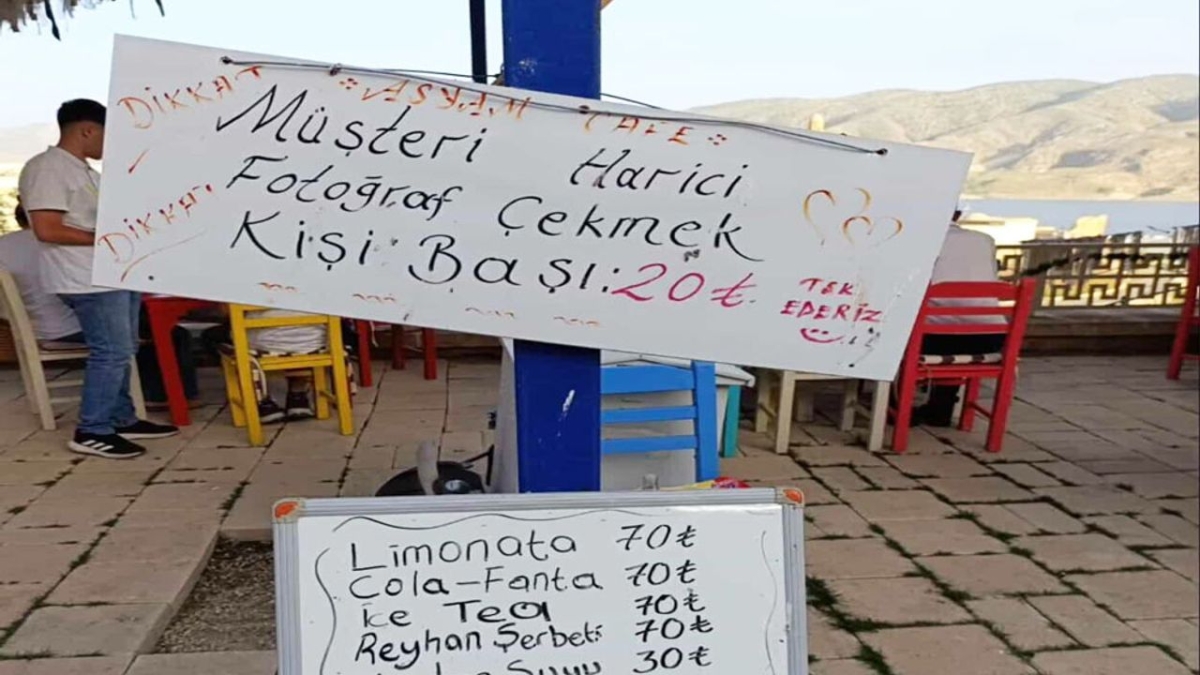 DİKKAT
ASYAM CAFE
Müşteri Harici
Fotoğraf Çekmek
DİKKAT
Kişi Başı: 20 ₺
TEK
EDERİZ
Limonata 70 ₺
Cola-Fanta 70 ₺
İce Tea 70 ₺
Reyhan Şerbeti 70 ₺
Suyu 30 ₺